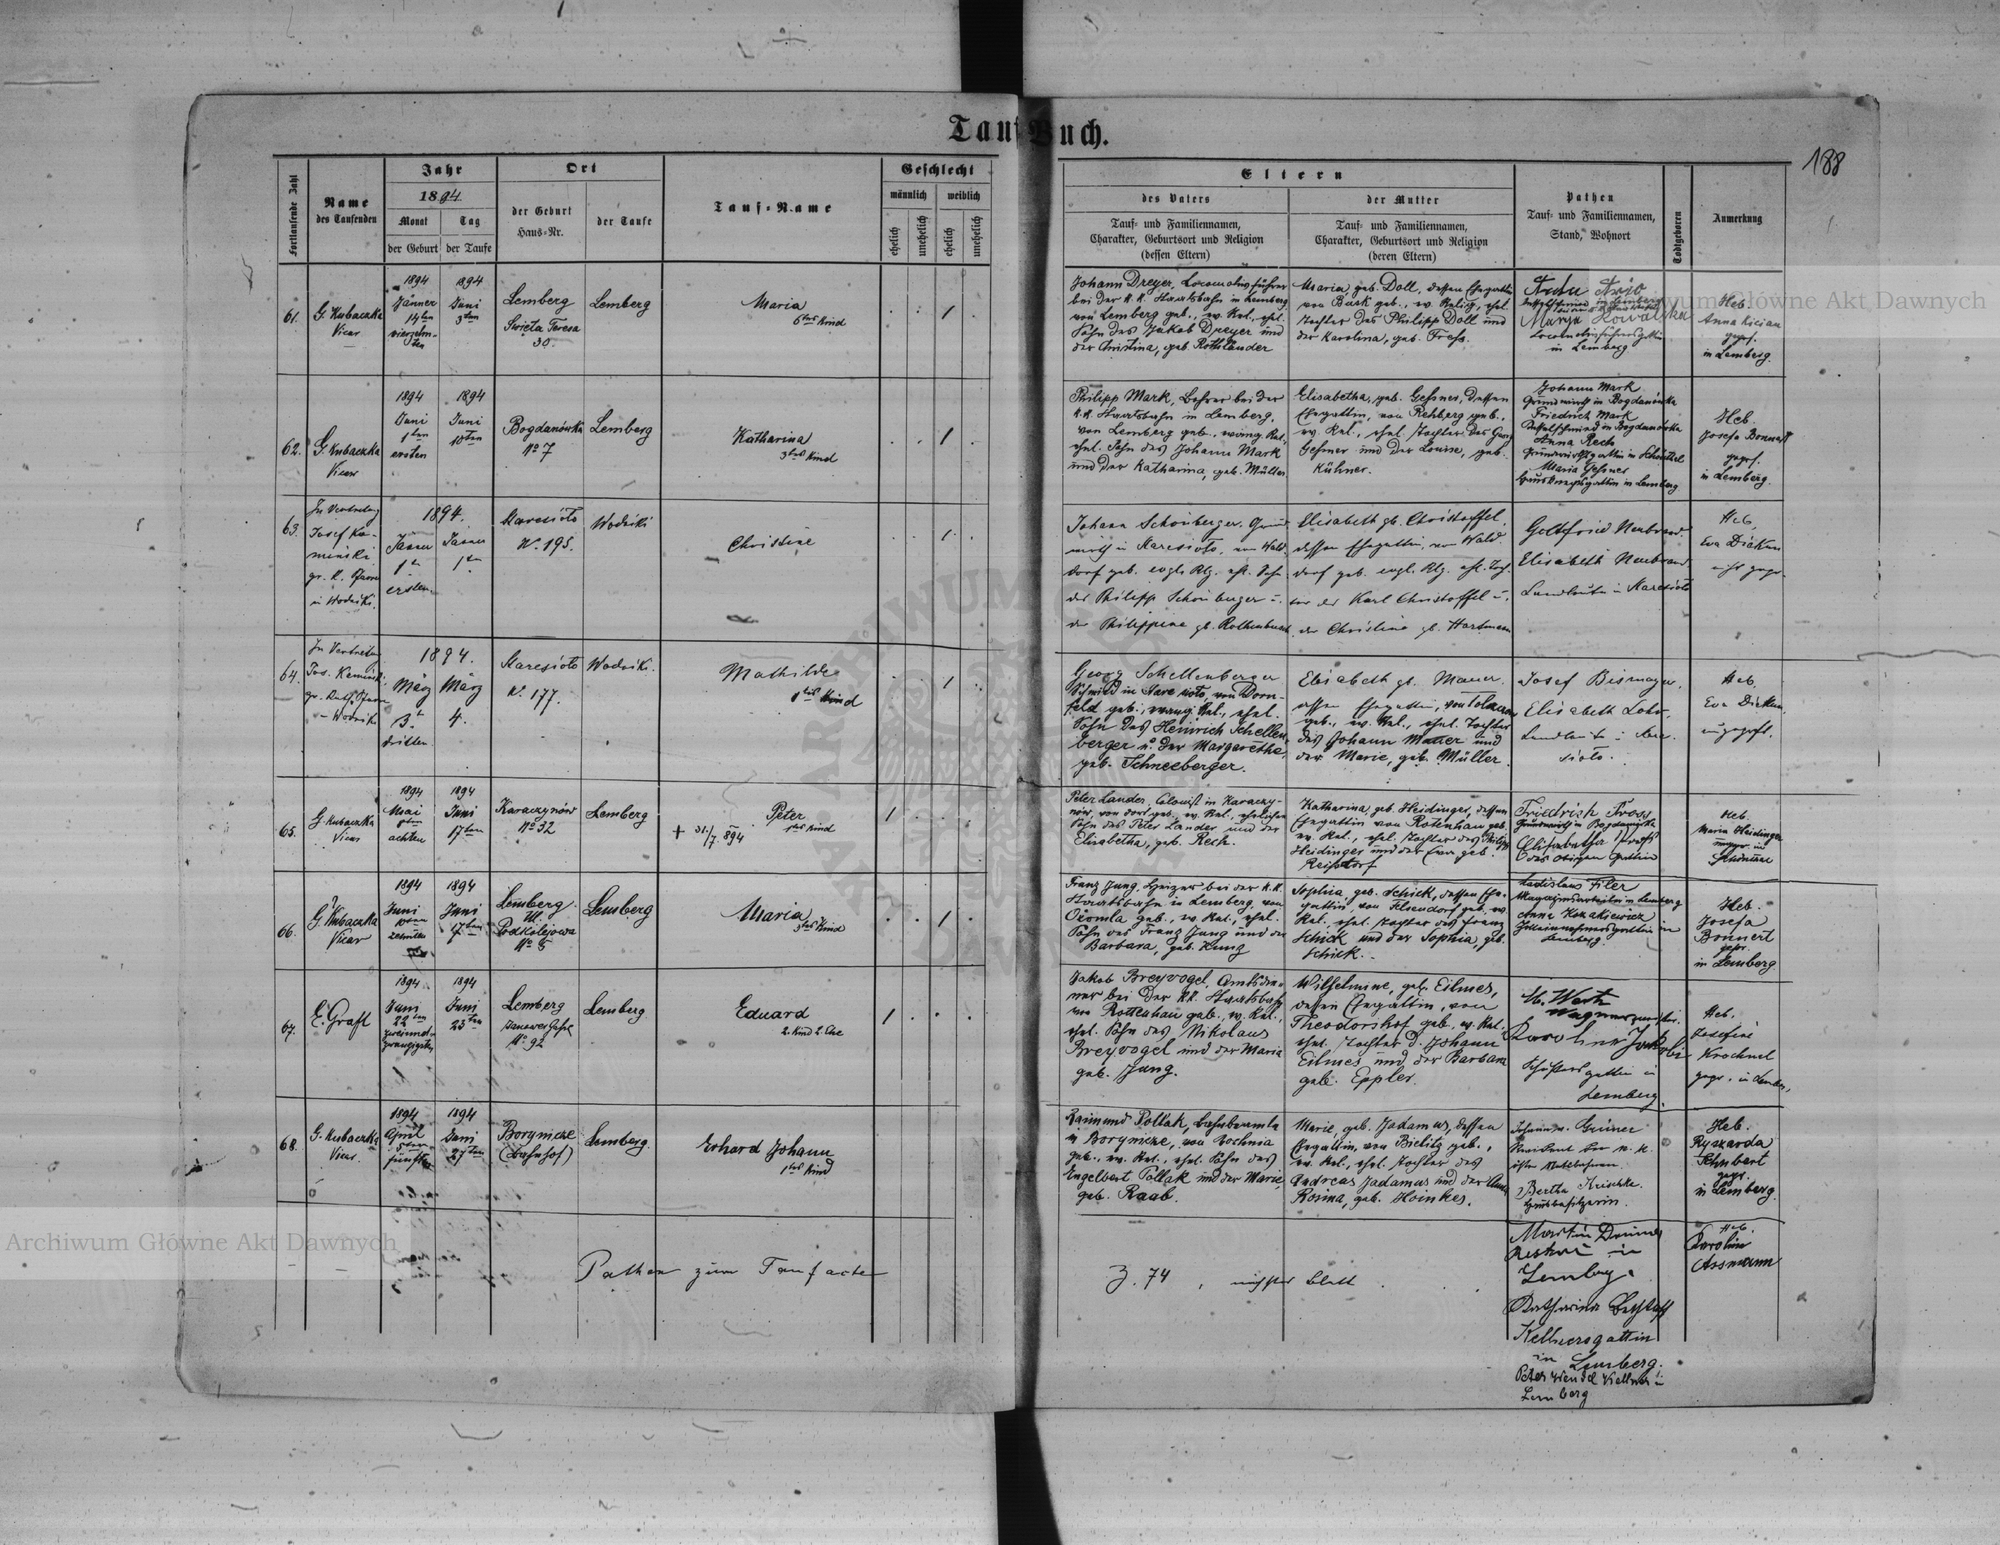 Tauf-Buch.
188
Fortlaufende Zahl
Name
des Taufenden
Jahr
1894
Monat
Tag
der Geburt
der Taufe
Ort
der Geburt
Haus-Nr.
der Taufe
Tauf-Name
Geschlecht
männlich
weiblich
ehelich
unehelich
ehelich
unehelich
Eltern
des Vaters
Tauf- und Familiennamen,
Charakter, Geburtsort und Religion
(dessen Eltern)
der Mutter
Tauf- und Familiennamen,
Charakter, Geburtsort und Religion
(deren Eltern)
Pathen
Tauf- und Familiennamen,
Stand, Wohnort
Todtgeboren
Anmerkung
61.
G. Kubaczka
Vicar
1894
Jänner
14ten
vierzehn-
ten
1894
Juni
3ten
Lemberg
Święta Teresa
30.
Lemberg
Maria
6tes Kind
Johann Dreyer, Locomotivführer
bei der k.k. Staatsbahn in Lemberg
von Lemberg geb., ev. Rel., ehel.
Sohn des Jakob Dreyer und
der Christina, geb. Rothländer
Maria, geb. Doll, dessen Ehegattin
von Busk geb., ev. Relig., ehel.
Tochter des Philipp Doll und
der Karolina, geb. Fress.
Marya Kowalska
Locomotivführersgattin
in Lemberg
Heb.
Anna Kician
gepr.
in Lemberg.
62.
G. Kubaczka
Vicar
1894
Juni
1ten
ersten
1894
Juni
10ten
Bogdanówka
No 7
Lemberg
Katharina
3tes Kind
Philipp Mark, Bohrer bei der
k.k. Staatsbahn in Lemberg,
von Lemberg geb., evang. Rel.,
ehel. Sohn des Johann Mark
und der Katharina, geb. Müller
Elisabetha, geb. Gessner, dessen
Ehegattin, von Rehberg geb.,
ev. Rel., ehel. Tochter des Georg
Gessner und der Louise, geb.
Kühner.
Johann Mark
Grundwirth in Bogdanówka
Friedrich Mark
Kesselschmied in Bogdanówka
Anna Rech
Grundwirthsgattin in Schönthal
Maria Gessner
in Lemberg
Heb.
Josefa Bonnert
gepr.
in Lemberg.
63.
In Vertretung
Josef Ka-
minski
gr. k. Pfarrer
in Wodniki.
1894.
Jänner
1ten
ersten
Jänner
1ten
Staresioło
N. 195.
Wodniki
Christine
Johann Schönberger, Grund-
wirth in Staresioło, von Wald-
dorf geb. evgl. Rlg. ehl. Sohn
des Philipp Schönberger u.
der Philippine gb. Rothenbusch
Elisabeth gb. Christoffel,
dessen Ehegattin, von Wald-
dorf geb. evgl. Rlg. ehl. Toch-
ter des Karl Christoffel u.
der Christine gb. Hartmann
Gottfried Neubrand
Elisabeth Neubrand
Landleute in Staresioło
Heb.
Eva Dickun
nicht gepr.
64.
In Vertretung
Jos. Kaminski
gr. kath. Pfarrer
in Wodniki
1894.
März
3t
dritten
März
4.
Staresioło
N. 177.
Wodniki.
Mathilde
1tes Kind
Georg Schellenberger
Schmied in Staresioło, von Dorn-
feld geb., evang. Rel., ehel.
Sohn des Heinrich Schellen-
berger u. der Margaretha,
geb. Schneeberger.
Elisabeth gb. Mauer.
dessen Ehegattin,
geb., ev. Rel., ehel. Tochter
des Johann Mauer und
der Marie, geb. Müller
Josef Bismayer,
Elisabeth
Landleute in Stare-
sioło.
Heb.
Eva Dickun
ungeprft.
65.
G. Kubaczka
Vicar
1894
Mai
8ten
achten
1894
Juni
17ten
Karaczynów
No 32
Lemberg
+ 31/7. 894
Peter
1tes Kind
Peter Lander, Colonist in Karaczy-
nów, von dort geb., ev. Rel., ehelicher
Sohn des Peter Lander und der
Elisabetha, geb. Rech.
Katharina, geb. Heidinger, dessen
Ehegattin von Rotenhan geb.
ev. Rel., ehel. Tochter des Philipp
Heidinger und der Eva geb.
Reichsdorf
Friedrich Pross
Grundwirth in Bogdanówka
Elisabetha Pross
des obigen Gattin
Heb.
Maria Heidinger
ungepr. in
66.
G. Kubaczka
Vicar
1894
Juni
10ten
zehnten
1894
Juni
17ten
Lemberg
Ul.
Podkolejowa
No 5
Lemberg
Maria
3tes Kind
Franz Jung, Heizer bei der k.k.
Staatsbahn in Lemberg, von
Ożomla geb., ev. Rel., ehel.
Sohn des Franz Jung und der
Barbara, geb. Kung
Sophia, geb. Schick, dessen Ehe-
gattin, von Felsendorf geb. ev.
Rel. ehel. Tochter des Franz
Schick und der Sophia, geb.
Schick.
Ladislaus Filer
Magazinsarbeiter in Lemberg
Anna Kozakiewicz
Lemberg
Heb.
Josefa
Bonnert
gepr.
in Lemberg
67.
E. Grafl
1894.
Juni
22ten
zweiund-
zwanzigsten
1894
Juni
23ten
Lemberg
Janowergasse
No 92
Lemberg
Eduard
2. Kind 2. Ehe
Jakob Breyvogel, Amtsdie-
ner bei der k.k. Staatsbahn
von Rottenhan geb., ev. Rel.,
ehel. Sohn des Nikolaus
Breyvogel und der Maria
geb. Jung.
Wilhelmine, geb. Eilmes,
dessen Ehegattin, von
Theodorshof geb., ev. Rel.
ehel. Tochter d. Johann
Eilmes und der Barbara
geb. Eppler.
Wagnermeister.
Karoline Jakobi
Schusters gattin in
Lemberg.
Heb.
Josefine
Krochmal
gepr. in Lemberg,
68.
G. Kubaczka
Vicar.
1894
April
5ten
fünften
1894
Juni
27ten
Borynicze
(Bahnhof)
Lemberg.
Erhard Johann
1tes Kind
Raimund Pollak, Bahnbeamte
in Borynicze, von Bochnia
geb., ev. Rel., ehel. Sohn des
Engelbert Pollak und der Marie
geb. Raab.
Marie, geb. Jadamus, dessen
Ehegattin, von Bielitz geb.,
ev. Rel., ehel. Tochter des
Andreas Jadamus und der Anna
Rosina, geb. Hoinkes.
Johann Greiner
Bertha
Hausbesitzerin.
Heb.
Ryszarda
Schubert
gepr.
in Lemberg.
Pathen zum Taufacte
Z. 74, nächstes Blatt
Martin
in
Lemberg.
Katharina
Kellnersgattin
in Lemberg.
Peter Wendel Kellner in
Lemberg
Heb.
Karolin
Assmann
Archiwum Główne Akt Dawnych
Archiwum Główne Akt Dawnych